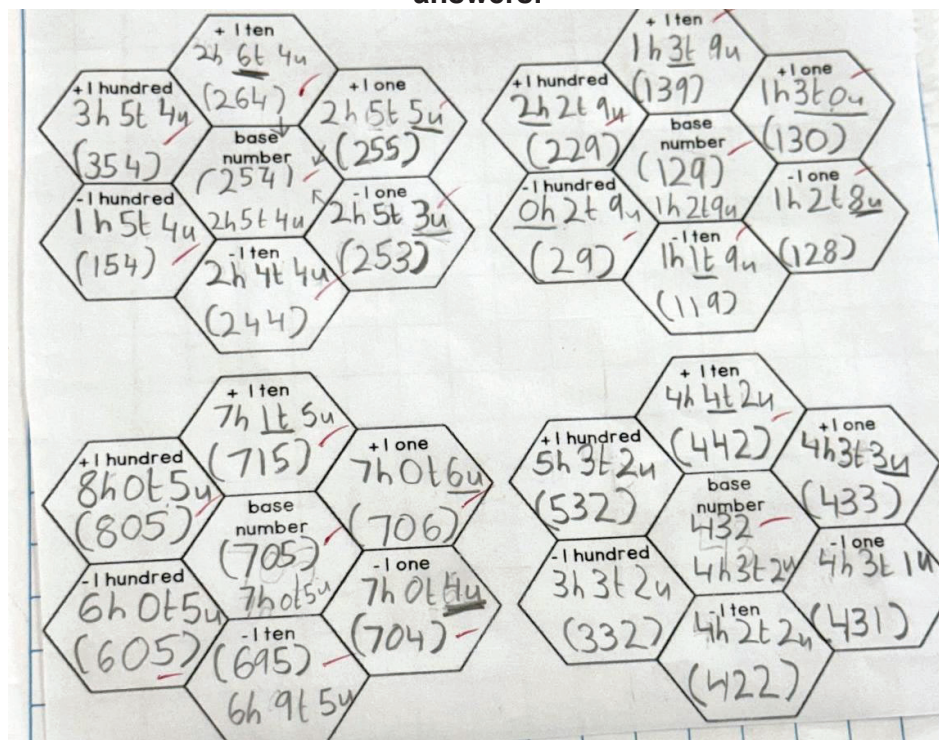 answers.
+ 1 ten
2h 6t 4u
(264)
+1 hundred
3h 5t 4u
(354)
+1 one
2h 5t 5u
(255)
base
number
(254)
2h5t4u
-1 hundred
1h 5t 4u
(154)
-1 one
2h 5t 3u
(253)
-1 ten
2h 4t 4u
(244)
+ 1 ten
1h 3t 9u
(139)
+1 hundred
2h 2t 9u
(229)
+1 one
1h3t0u
(130)
base
number
(129)
1h2t9u
-1 hundred
0h 2t 9u
(29)
-1 one
1h2t8u
(128)
-1 ten
1h 1t 9u
(119)
+ 1 ten
7h 1t 5u
(715)
+1 hundred
8h0t5u
(805)
+1 one
7h0t6u
(706)
base
number
(705)
7h0t5u
-1 hundred
6h 0t5u
(605)
-1 one
7h 0t4u
(704)
-1 ten
(695)
6h 9t 5u
+ 1 ten
4h 4t 2u
(442)
+1 hundred
5h 3t2u
(532)
+1 one
4h3t3u
(433)
base
number
432
4h3t2u
-1 hundred
3h 3t 2u
(332)
-1 one
4h 3t 1u
(431)
-1 ten
4h 2t 2u
(422)